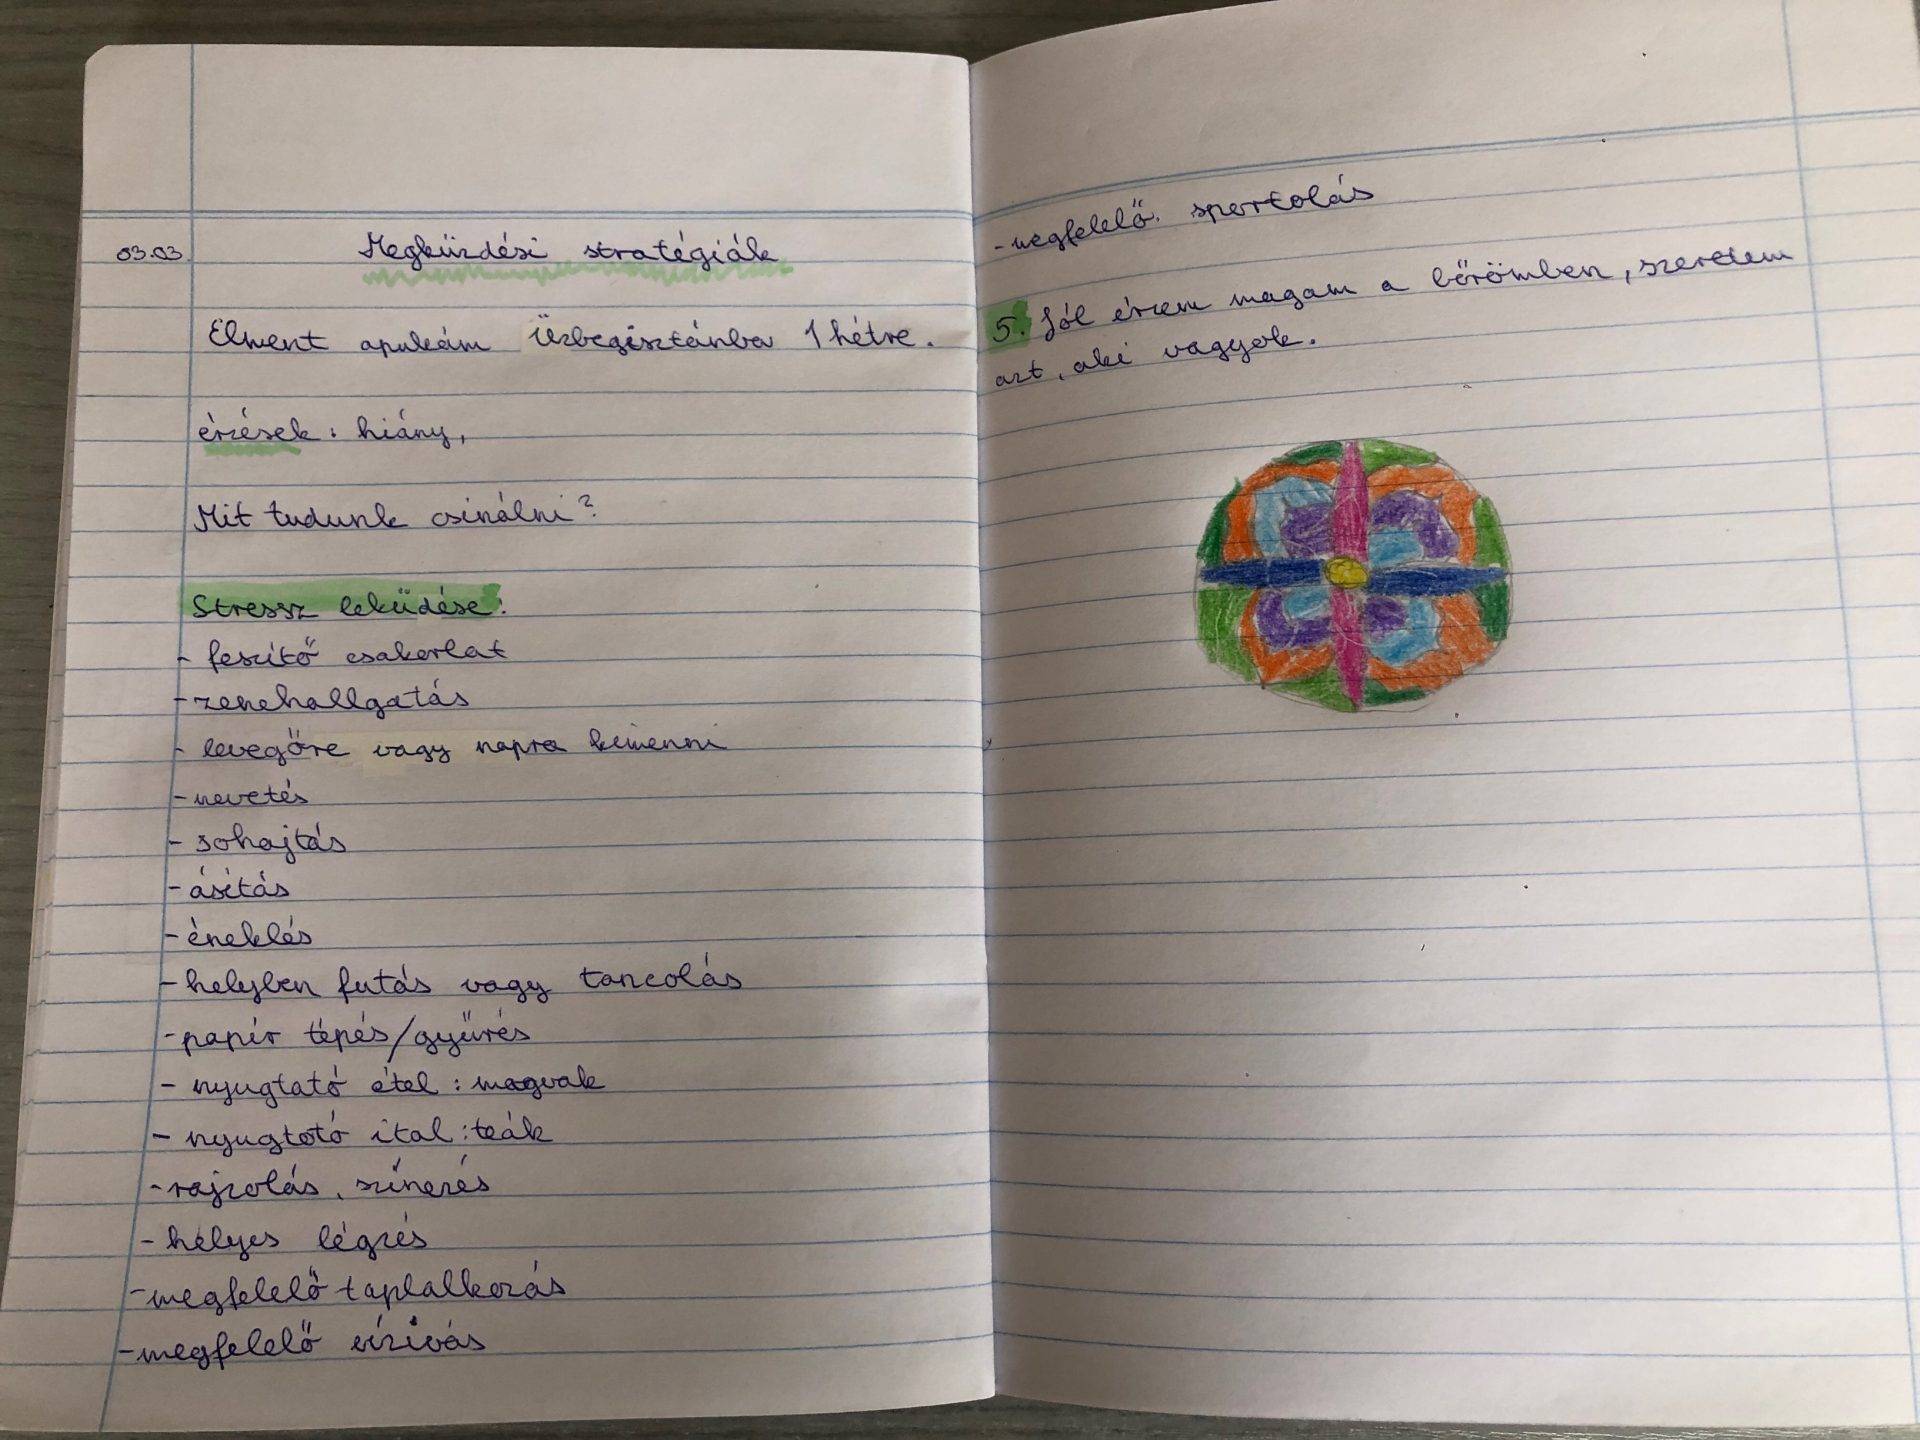 03.03.
Megküzdési stratégiák
Elment apukám Üzbegisztánba 1 hétre.
érzések: hiány,
Mit tudunk csinálni?
Stressz leküdése:
- feszítő csakorlat
- zenehallgatás
- levegőre vagy napra kimenni
- nevetés
- sohajtás
- ásítás
- éneklés
- helyben futás vagy tancolás
- papír tépés/gyűrés
- nyugtató étel: magvak
- nyugtotó ital: teák
- rajzolás, színezés
- helyes légzés
- megfelelő taplalkozás
- megfelelő vízivás
- megfelelő. sportolás
5. Jól érzem magam a bőrömben, szeretem
azt, aki vagyok.